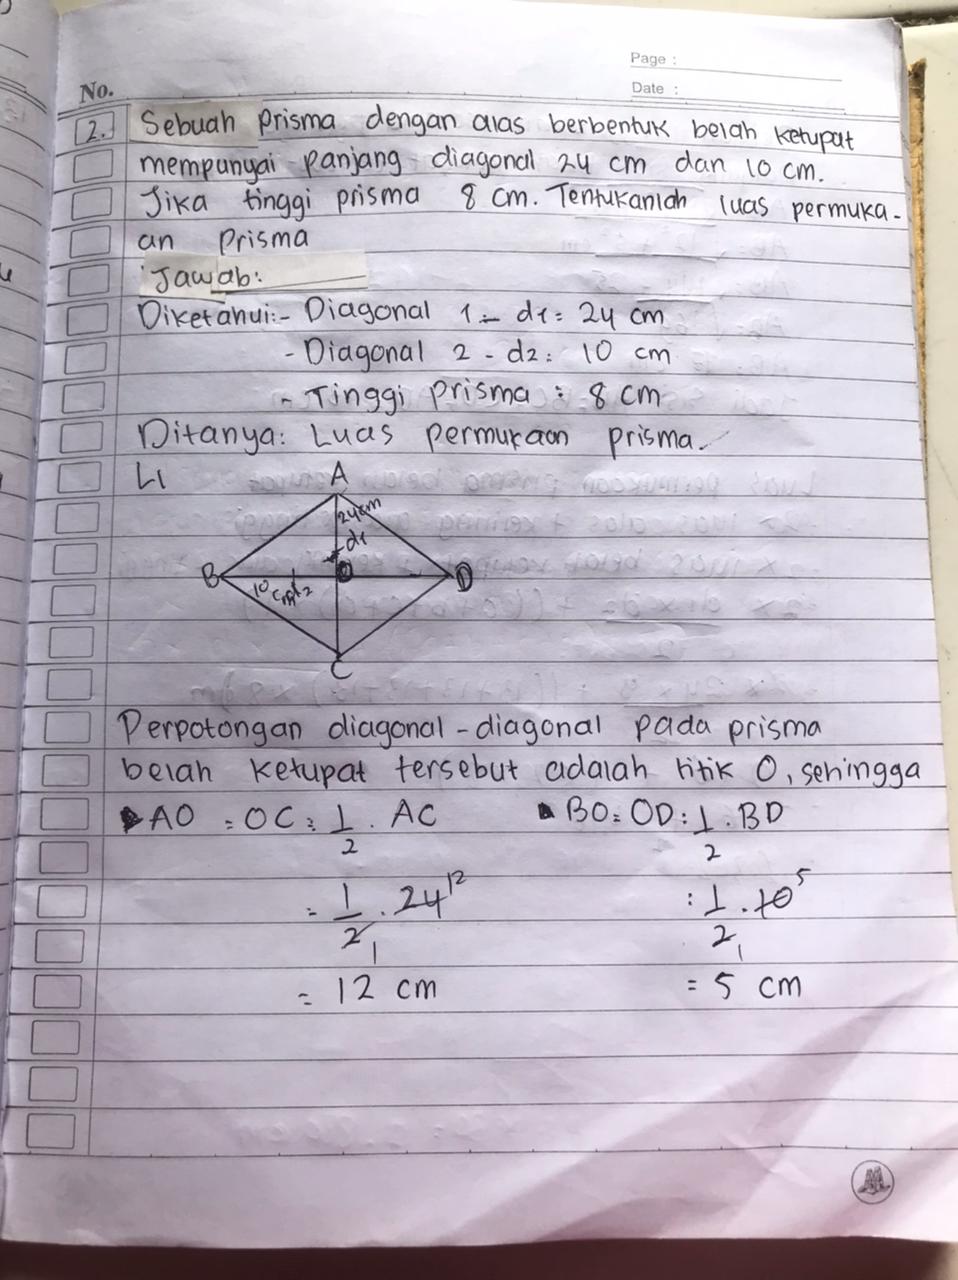 Page :
No.
Date :
2. Sebuah prisma dengan alas berbentuk belah ketupat
mempunyai panjang diagonal 24 cm dan 10 cm.
Jika tinggi prisma 8 cm. Tentukanlah luas permuka-
an prisma
Jawab:
Diketahui:- Diagonal 1 - d1 = 24 cm
- Diagonal 2 - d2 : 10 cm
- Tinggi prisma : 8 cm
Ditanya: Luas permukaan prisma.
A
24 cm
d1
B O D
10 cm d2
C
Perpotongan diagonal-diagonal pada prisma
belah ketupat tersebut adalah titik O, sehingga
AO = OC : 1/2 . AC BO = OD : 1/2 . BD
= 1/2 1 . 24 12 : 1/2 1 . 10 5
= 12 cm = 5 cm